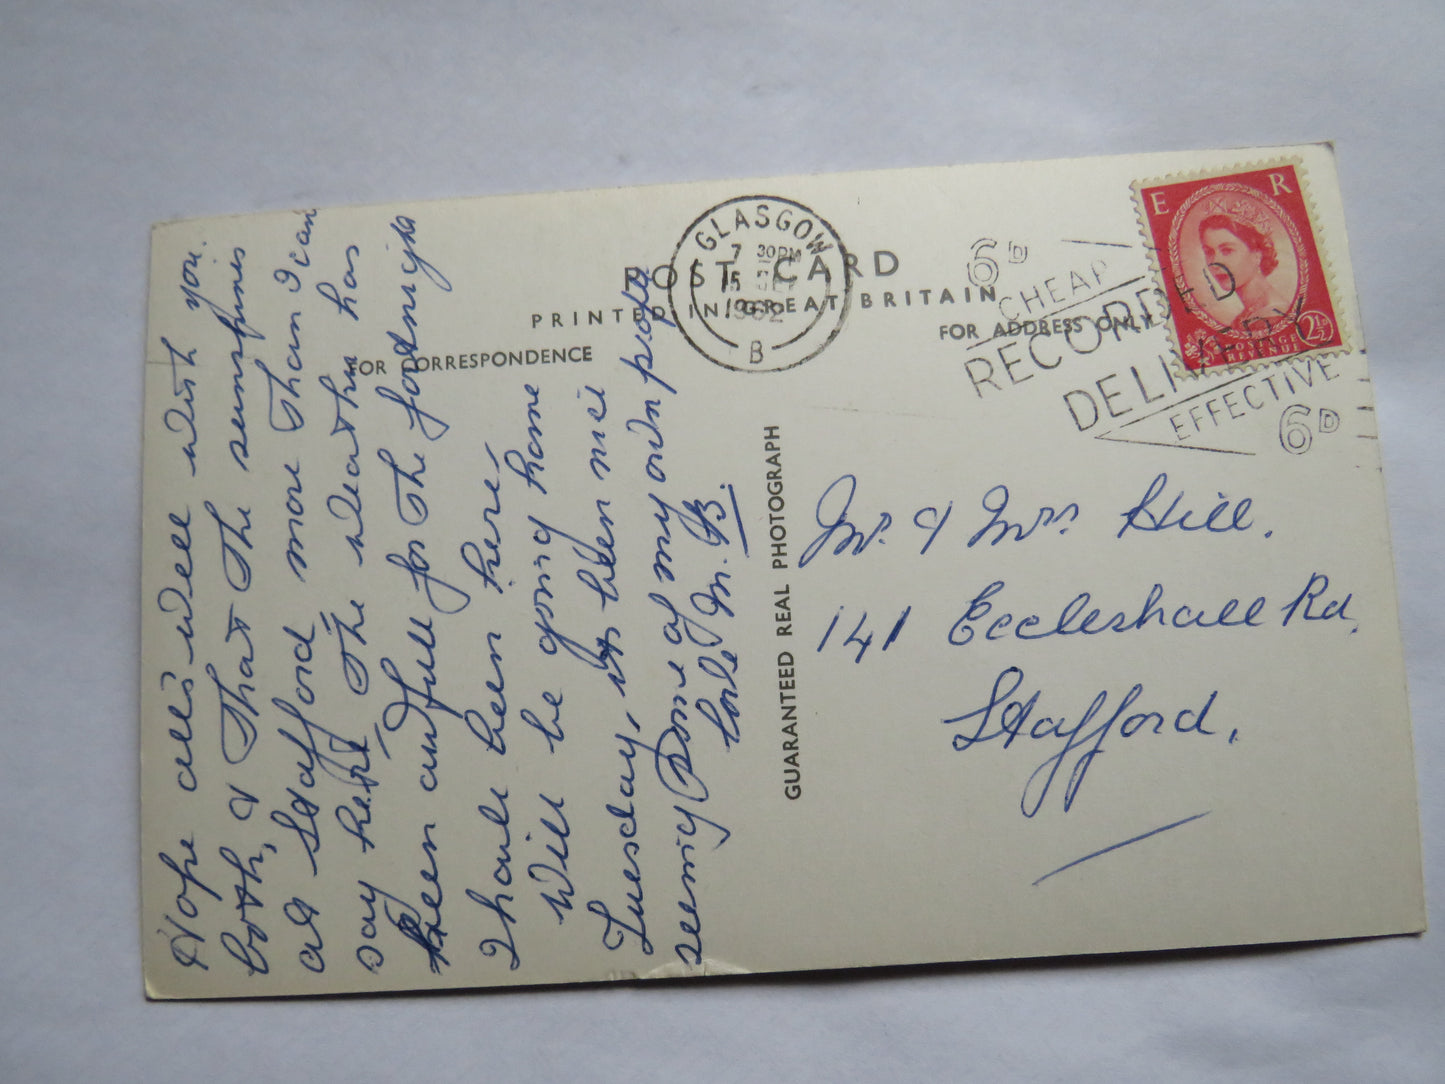 POST CARD
PRINTED IN GREAT BRITAIN
FOR CORRESPONDENCE
FOR ADDRESS ONLY
GLASGOW
7 30PM
15
1962
B
6D
CHEAP
RECORDED
DELIVERY
EFFECTIVE
6D
E R
2½D
POSTAGE
REVENUE
Hope all's well with you
both, & that the sun shines
at Stafford more than I can
say here, the weather has
been awfull for the fortnight
I have been here,
Will be going home
Tuesday, its been nice
seeing some of my own people
Love M. B.
GUARANTEED REAL PHOTOGRAPH
Mr. & Mrs. Hill.
141 Eccleshall Rd,
Stafford,